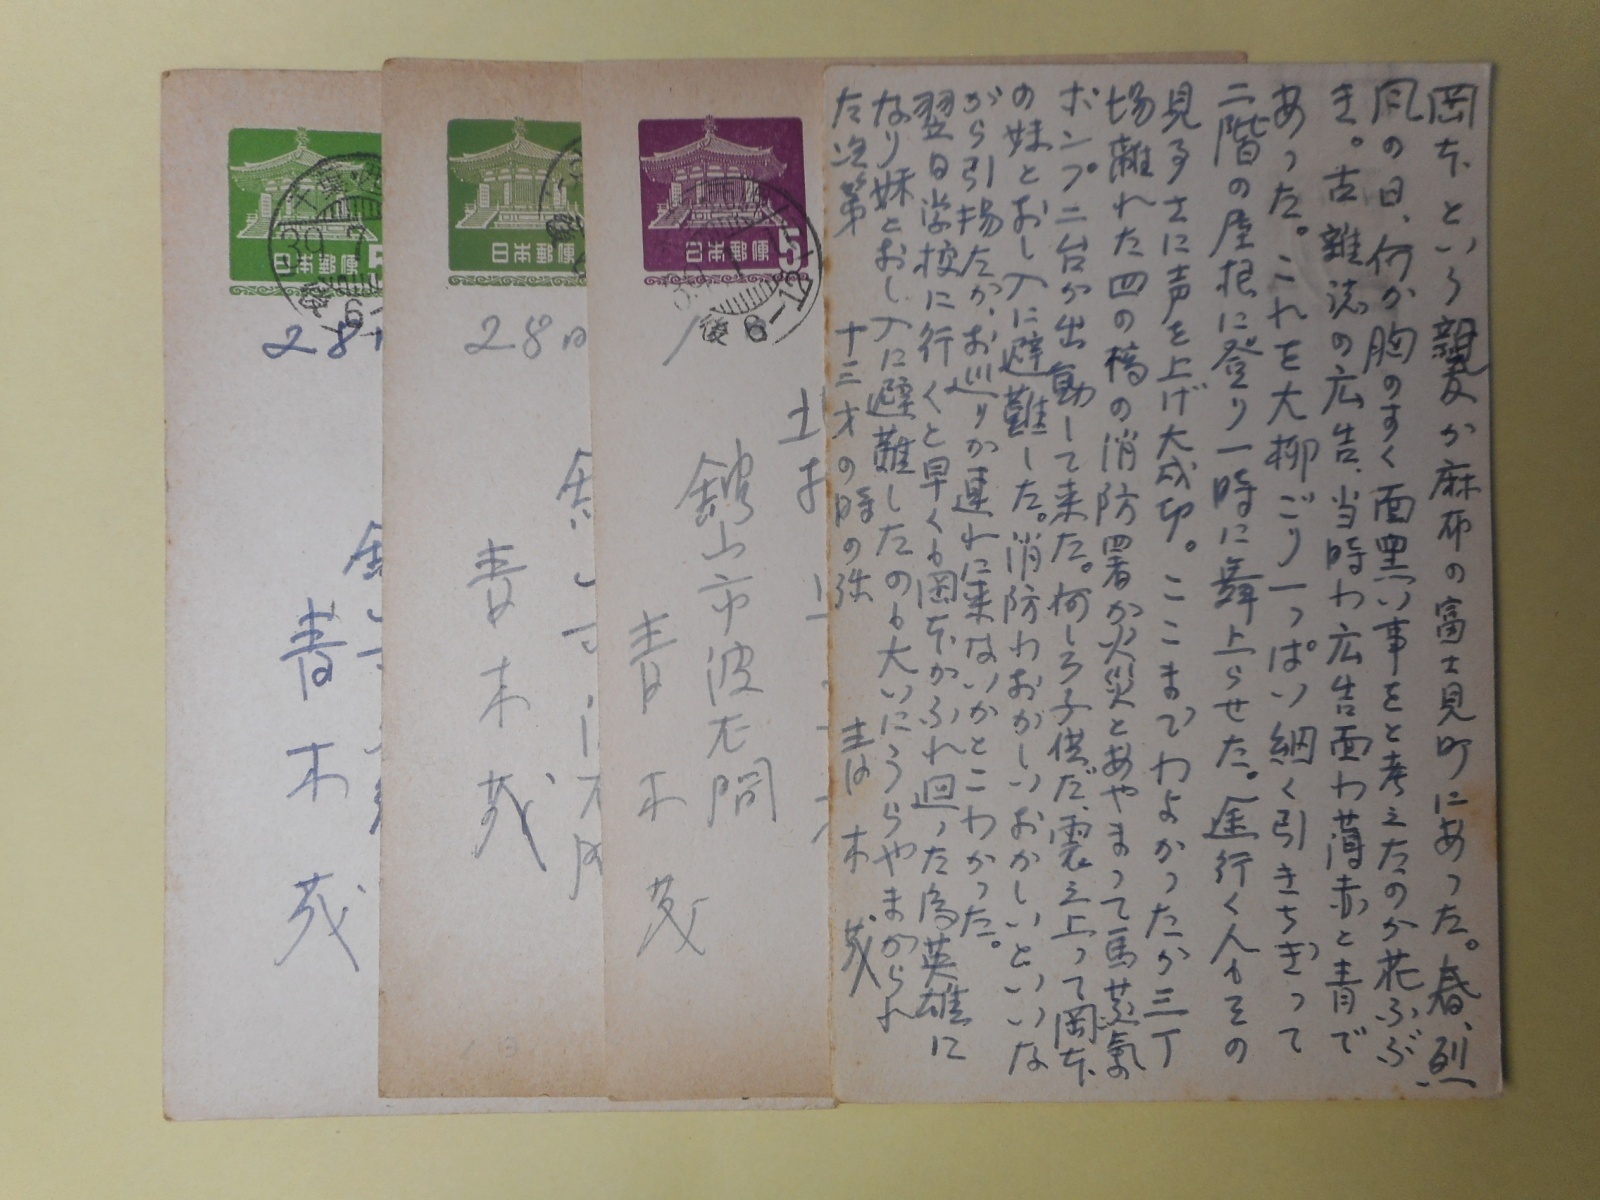 岡本という親友が麻布の富士見町にあった。春、烈
風の日、何か胸のすく面黒い事をと考えたのが花ふぶ
き。古雑誌の広告、当時わ広告面わ薄赤と青で
あった。これを大柳ごり一っぱい細く引きちぎって
二階の屋根に登り一時に舞上らせた。途行く人もその
見事さに声を上げ大成功。ここまでわよかったが三丁
場離れた四の橋の消防署が火災とあやまって馬蒸気の
ポンプ二台が出動して来た。何しろ子供だ、震え上って岡本
の妹とおし入に避難した。消防わおかしいおかしいといいな
がら引揚たが、お巡りが連れに来ないかとこわかった。
翌日学校に行くと早くも岡本がふれ廻った為英雄に
なり妹とおし入に避難したのも大いにうらやまがられ
た次第 十三才の時の弥 青木 茂
日本郵便
5
後6-12
館山市波左間
青木 茂
日本郵便
28
青木 茂
日本郵便
5
39
後6-
28
青木 茂